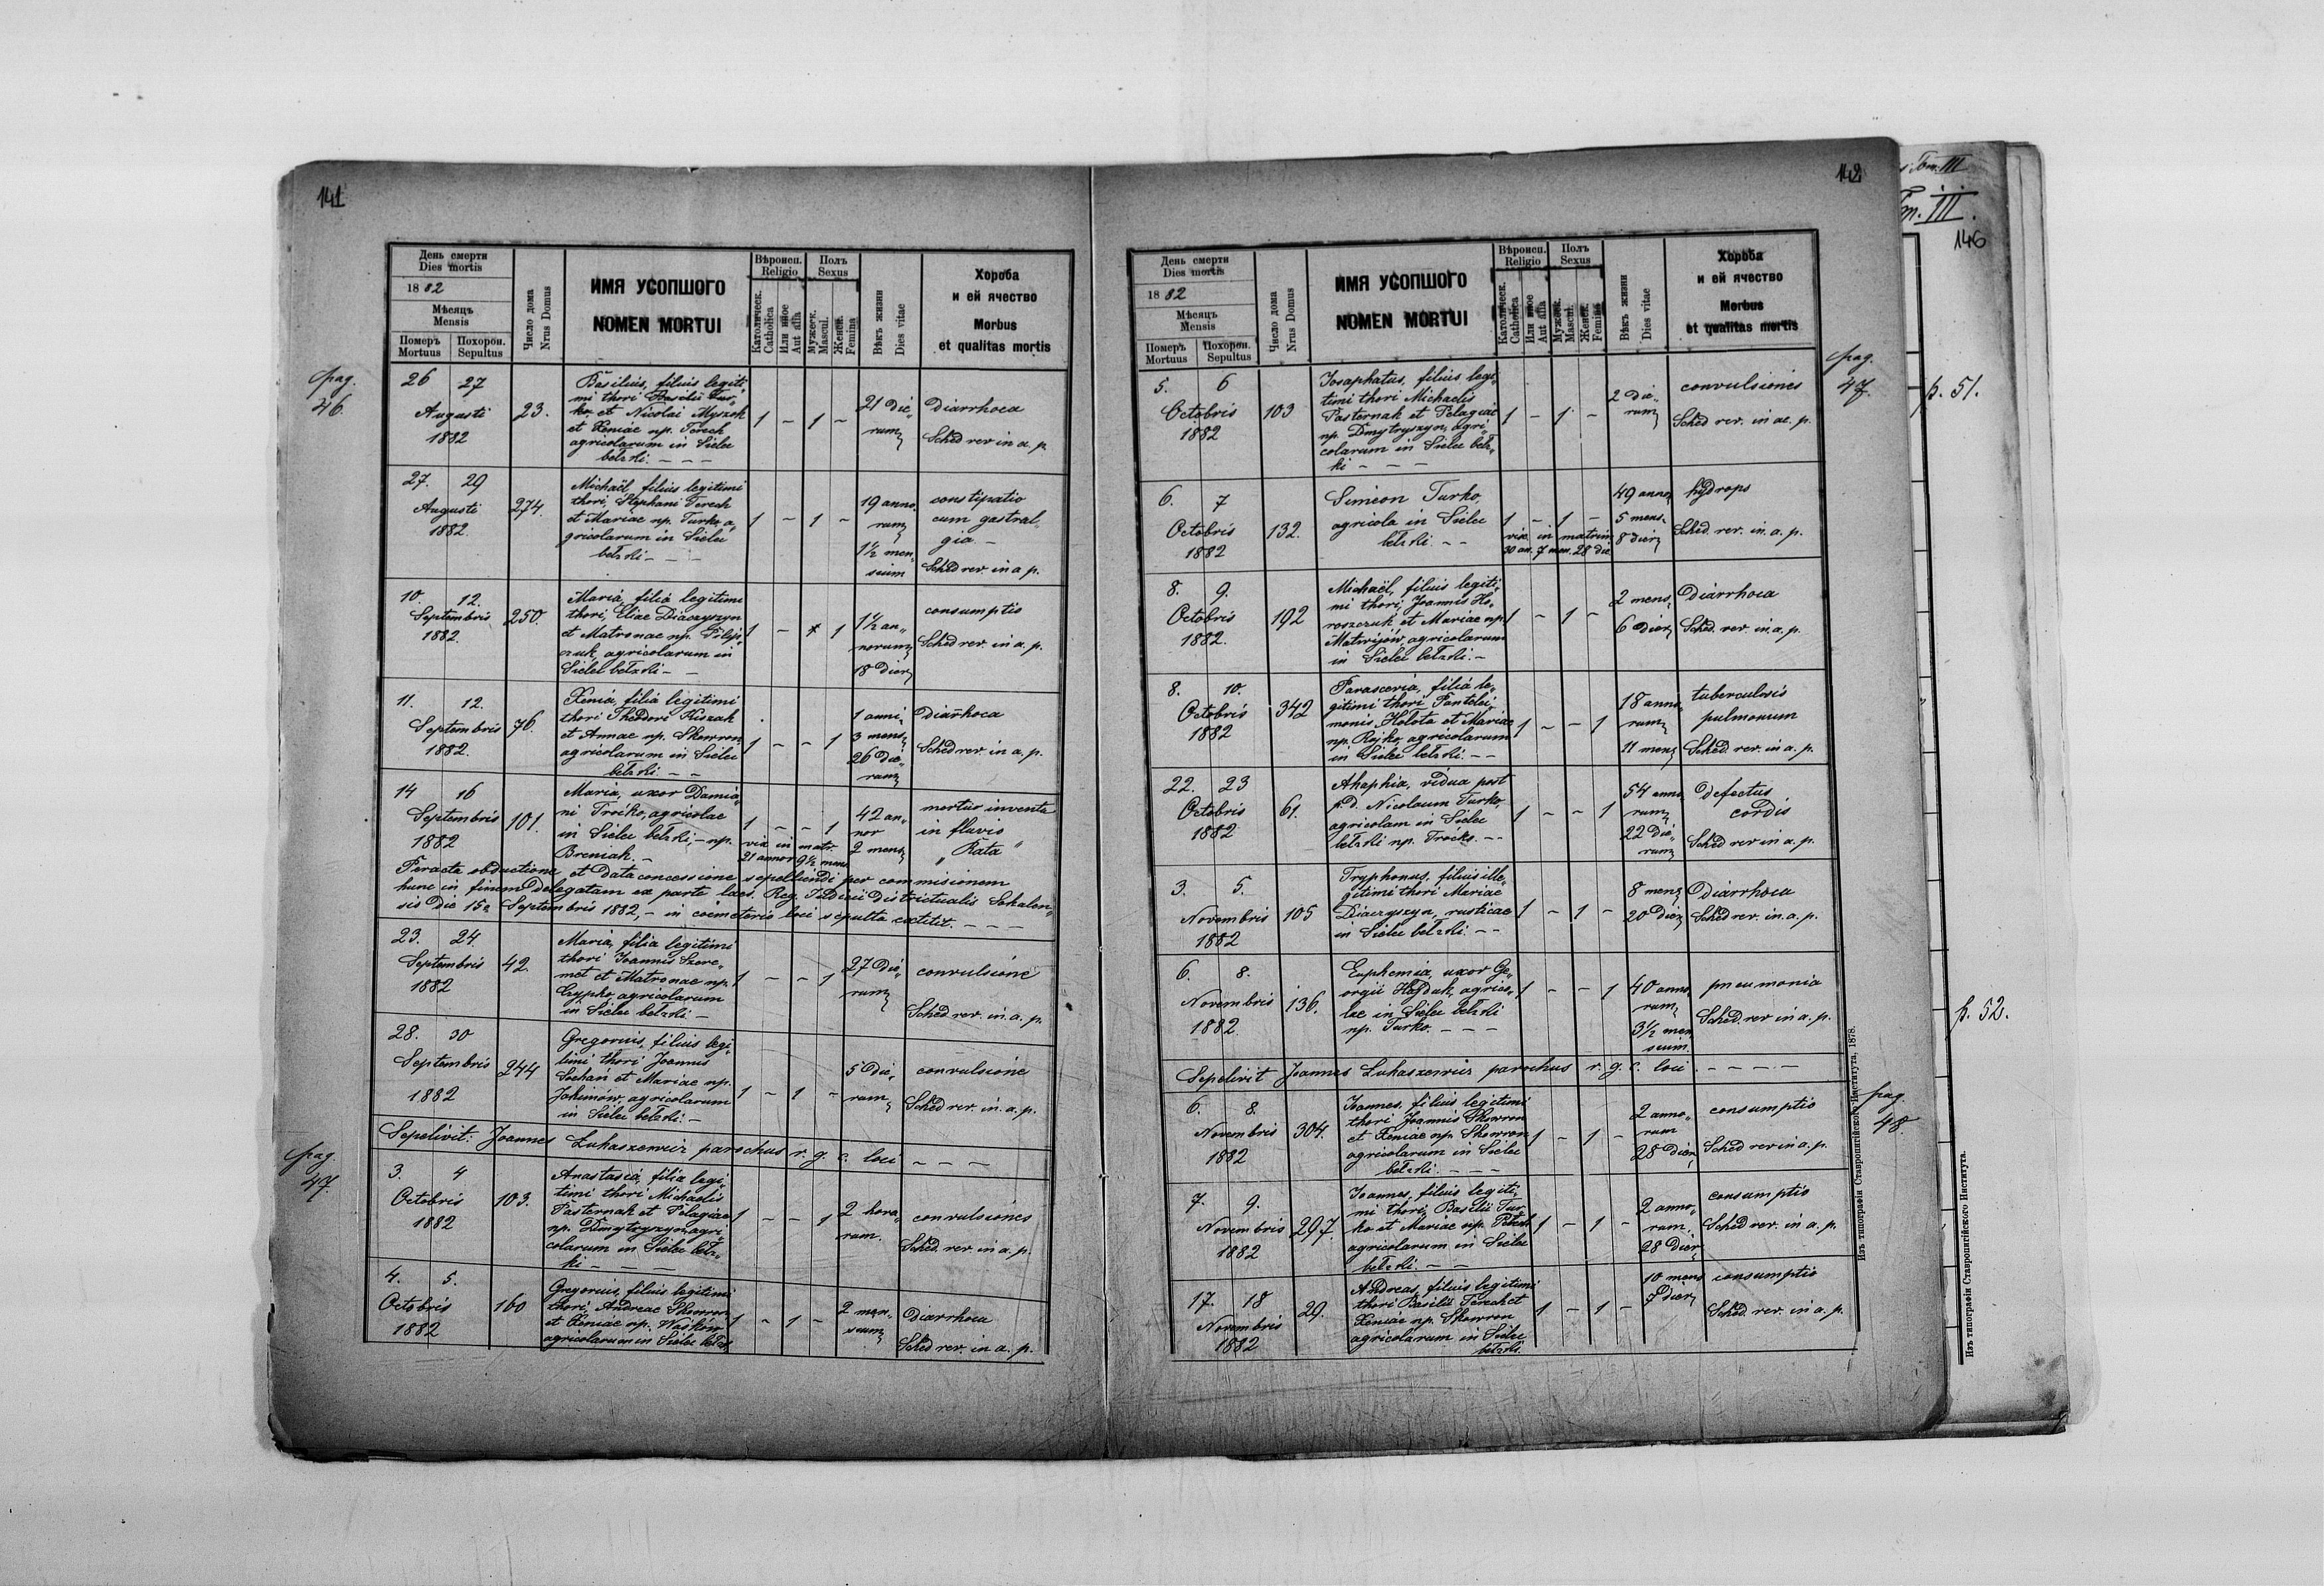 141
День смерти
Dies mortis
1882
Мѣсяцъ
Mensis
Померъ
Mortuus
Похорон.
Sepultus
Число дома
Nrus Domus
ИМЯ УСОПШОГО
NOMEN MORTUI
Вѣроисп.
Religio
Католическ.
Catholica
Или иное
Aut alia
Полъ
Sexus
Мужеск.
Mascul.
Женск.
Femina
Вѣкъ жизни
Dies vitae
Хороба
и ей ячество
Morbus
et qualitas mortis
pag.
46.
26 27
Augusti
1882
23.
Basilius, filius legiti„
mi thori Basilii Tur„
ko et Nicolai Myszok
et Xeniae np. Terech
agricolarum in Sielec
bełzki. – – –
1 – 1 –
21 die„
rum
Diarrhoea
Sched rev in a. p.
27. 29
Augusti
1882.
274.
Michaël, filius legitimi
thori, Stephani Terech
et Mariae np. Turko a„
gricolarum in Sielec
bełzki – – –
1 – 1 –
19 anno„
rum
1½ men„
sium
constipatio
cum gastral„
gia. –
Sched rev. in a p.
10. 12.
Septembris
1882.
250.
Maria, filia legitimi
thori, Eliae Diaczyszyn
et Matronae np. Pilip„
czuk, agricolarum in
Sielec bełzki – –
1 – 1
1½ an„
norum
18 dier
consumptio
Sched rev. in a. p.
11. 12.
Septembris
1882.
76.
Xenia, filia legitimi
thori Theodori Kiszak
et Annae np. Skowron
agricolarum in Sielec
bełzki. – –
1 – – 1
1 anni,
3 mens,
26 die„
rum
Diarrhoea
Sched rev. in a. p.
14 16
Septembris
1882
101.
Maria, uxor Damia„
ni Troćko, agricolae
in Sielec bełzki, – np.
Breniak. –
1 – – 1
vix in matr.
21 annor 9½ mens
42 an„
nor
2 mens
mortua inventa
in fluvio
„ Rata „
Peracta obductione, et data concessione sepelliendi per commisionem
hunc in finem delegatam ex parte Caes. Reg. Judicii districtualis Sokalen„
sis die 15a Septembris 1882, – in coemeterio loci sepulta extitit. – – –
23. 24.
Septembris
1882
42.
Maria, filia legitimi
thori Joannis Szere„
met et Matronae np.
Czypko, agricolarum
in Sielec bełzki –
1 – – 1
27 die„
rum
convulsione
Sched rev. in. a. p.
28. 30
Septembris
1882
244
Gregorius, filius legi„
timi thori Joannis
Sochań et Mariae np.
Jakimów, agricolarum
in Sielec bełzki –
1 – 1 –
5 die„
rum
convulsione
Sched rev. in. a. p.
Sepelivit: Joannes Łukaszewicz parochus r. g. c. loci – – –
pag.
47.
3. 4
Octobris
1882
103.
Anastasia, filia legi„
timi thori Michaelis
Pasternak et Pelagiae
np. Dmytryszyn, agri„
colarum in Sielec bełz„
ki – – –
1 – – 1
2 hora„
rum.
convulsiones
Sched. rev in a. p.
4. 5.
Octobris
1882
160
Gregorius, filius legitimi
thori, Andreae Skowron
et Xeniae np. Waśków
agricolarum in Sielec bełz
1 – 1 –
2 men„
sium
Diarrhoea
Sched rev. in a. p.
142
День смерти
Dies mortis
1882
Мѣсяцъ
Mensis
Померъ
Mortuus
Похорон.
Sepultus
Число дома
Nrus Domus
ИМЯ УСОПШОГО
NOMEN MORTUI
Вѣроисп.
Religio
Католическ.
Catholica
Или иное
Aut alia
Полъ
Sexus
Мужеск.
Mascul.
Женск.
Femina
Вѣкъ жизни
Dies vitae
Хороба
и ей ячество
Morbus
et qualitas mortis
pag.
47.
5. 6
Octobris
1882
103
Josaphatus, filius legi„
timi thori Michaelis
Pasternak et Pelagiae
np. Dmytryszyn, agri„
colarum in Sielec bełz„
ki – – –
1 – 1 –
2 die„
rum
convulsiones
Sched rev. in ac. p.
6. 7
Octobris
1882
132.
Simeon Turko,
agricola in Sielec
bełzki. – –
1 – 1 –
vix. in matrim
30 an. 7 men. 28 die
49 anno
5 mens.
8 dier
hydrops
Sched. rev. in. a. p.
8. 9.
Octobris
1882.
192
Michaël, filius legiti„
mi thori, Joannis Ho„
roszczuk et Mariae np.
Matwijów, agricolarum
in Sielec bełzki. –
1 – 1 –
2 mens,
6 dier
Diarrhoea
Sched. rev. in. a. p.
8. 10.
Octobris
1882
342
Parascevia, filia le„
gitimi thori Pantelei„
monis Holota et Mariae
np. Rojko, agricolarum
in Sielec bełzki. – –
1 – – 1
18 anno„
rum
11 mens
tuberculosis
pulmonum
Sched. rev. in a. p.
22. 23
Octobris
1882
61.
Ahaphia, vidua post
p. d. Nicolaum Turko
agricolam in Sielec
bełzki np. Troćko. – –
1 – – 1
54 anno
rum
22 die„
rum
Defectus
cordis
Sched rev in a. p.
3. 5.
Novembris
1882
105
Tryphonus, filius ille„
gitimi thori Mariae
Diaczyszyn, rusticae
in Sielec bełzki. – –
1 – 1 –
8 mens
20 dier
Diarrhoea
Sched rev. in. a. p.
6. 8.
Novembris
1882.
136.
Euphemia, uxor Ge„
orgii Hajduk, agrico„
lae in Sielec bełzki
np. Turko. – – –
1 – – 1
40 anno„
rum
3½ men
sium.
pneumonia
Sched. rev in a. p.
Sepelivit Joannes Łukaszewicz parochus r. g. c. loci – – – –
pag.
48.
6. 8.
Novembris
1882
304.
Joannes, filius legitimi
thori Joannis Skowron
et Xeniae np. Skowron
agricolarum in Sielec
bełzki. – – –
1 – 1 –
2 anno„
rum
28 dier
consumptio
Sched rev in a. p.
7. 9.
Novembris
1882
297.
Joannes, filius legiti„
mi thori, Basilii Tur„
ko et Mariae np.
agricolarum in Sielec
bełzki. – –
1 – 1 –
2 anno„
rum,
28 dier
consumptio
Sched rev. in a. p.
17. 18
Novembris
1882
29.
Andreas, filius legitimi
thori Basilii Terech et
Xeniae np. Skowron
agricolarum in Sielec
bełzki.
1 – 1 –
10 mens
7 dier
consumptio
Sched. rev. in a. p.
Изъ типографіи Ставропигійского Института, 1878.
Tom. III
Tom. III.
146
p. 51.
p. 52.
Изъ типографіи Ставропигійского Института.